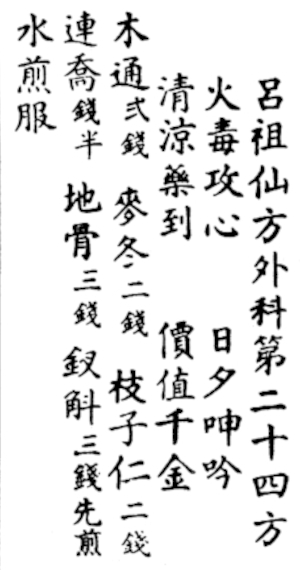 呂祖仙方外科第二十四方
火毒攻心 日夕呻吟
清涼藥到 價值千金
木通弍錢 麥冬二錢 枝子仁二錢
連喬錢半 地骨三錢 釵斛三錢先煎
水煎服